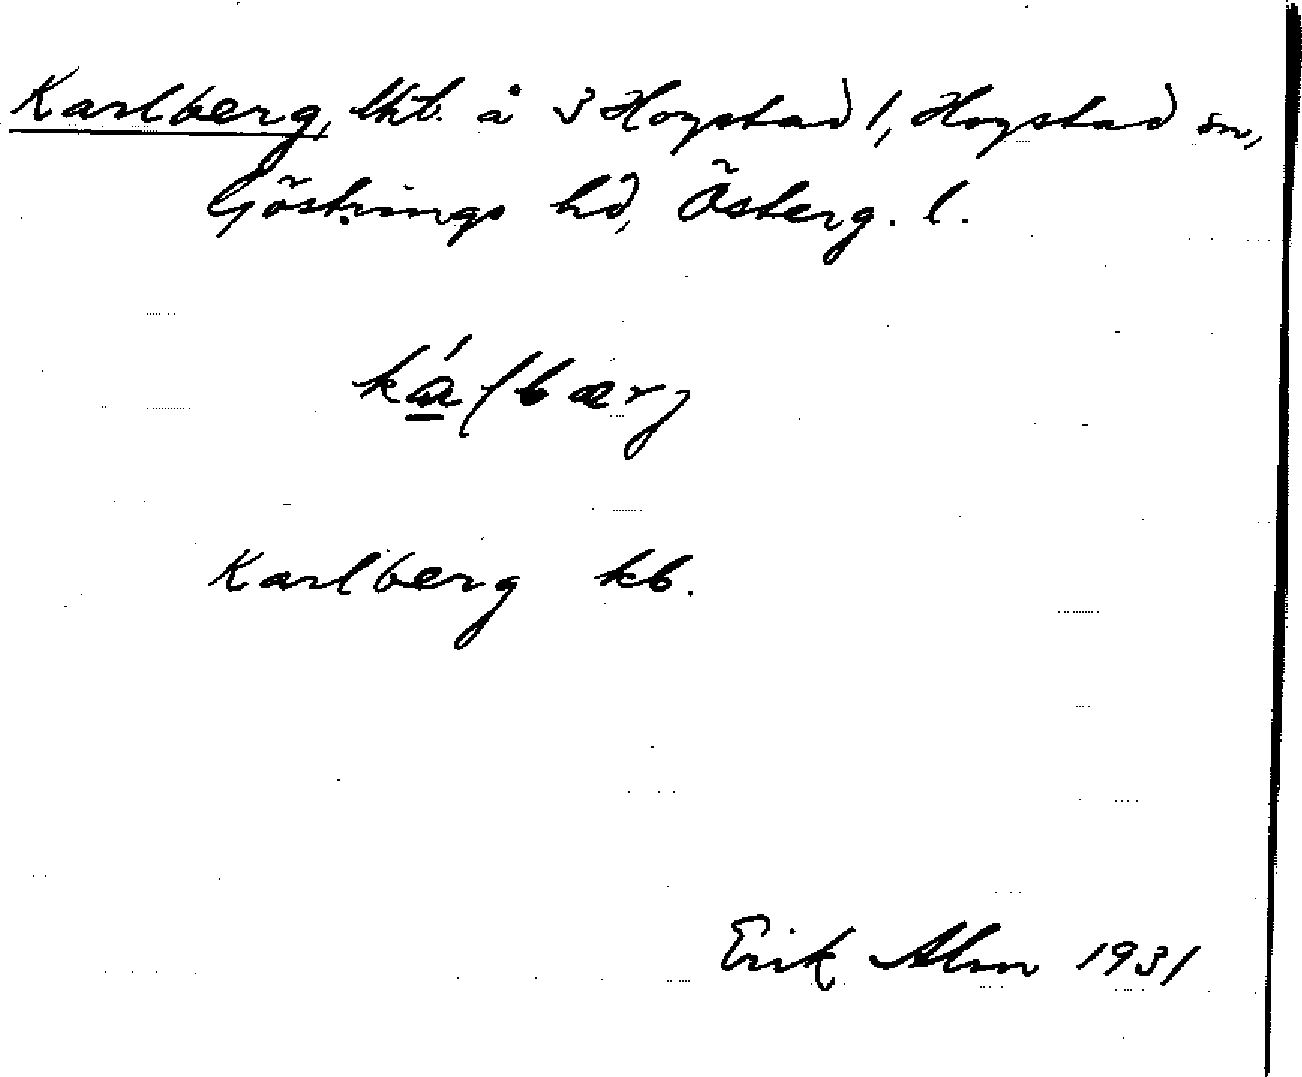 Karlberg, lht. å 3 Hogstad 1, Hogstad sn,
Göstrings hd, Österg. l.
kálbærj
Karlberg kb.
Erik Alm 1931